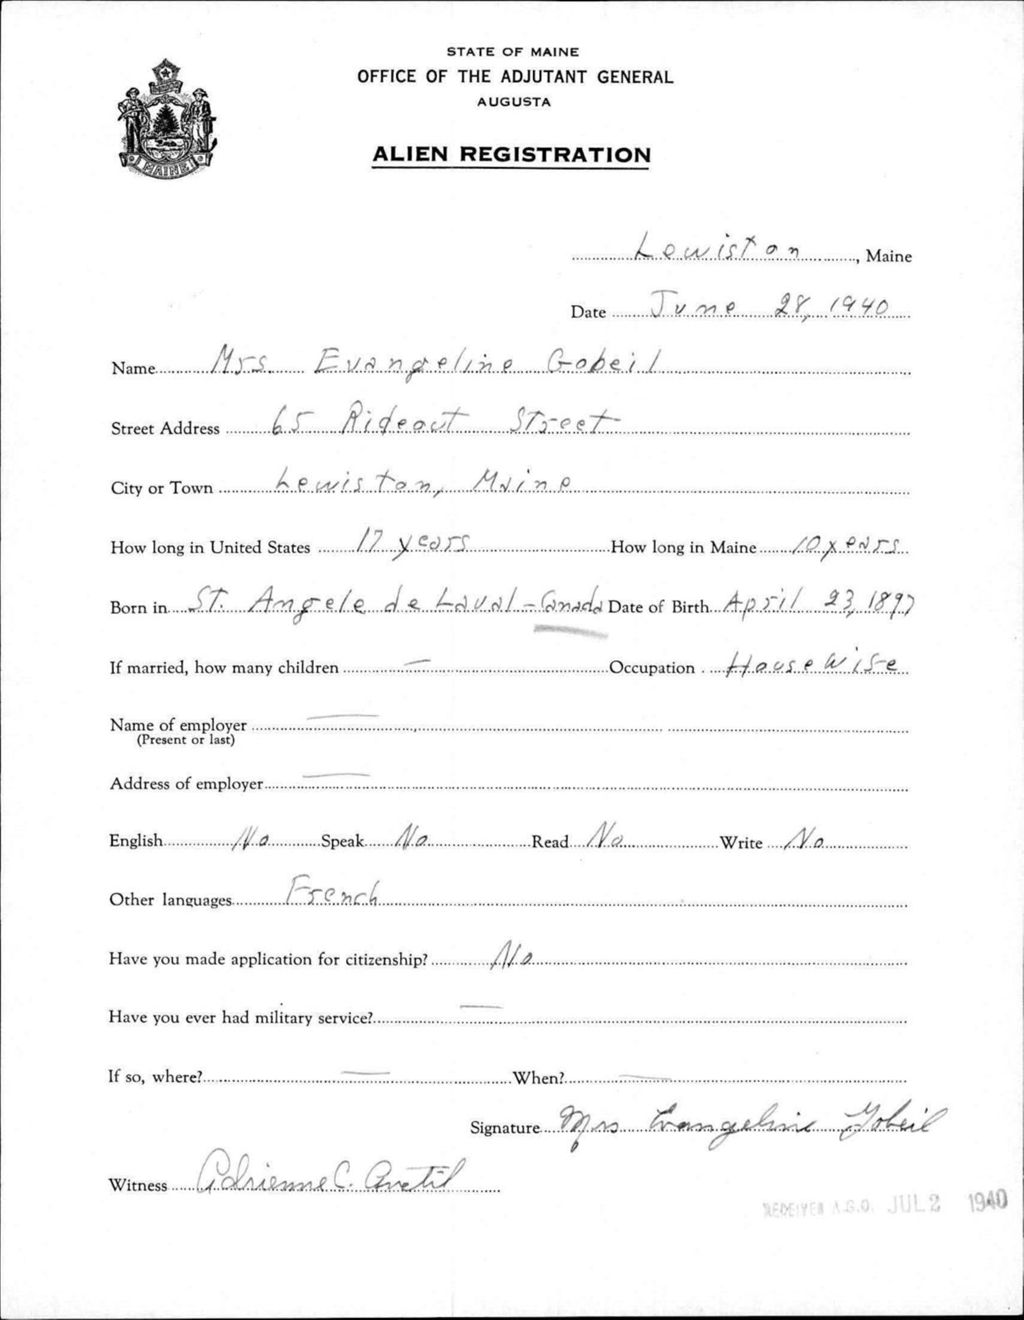 STATE OF MAINE
OFFICE OF THE ADJUTANT GENERAL
AUGUSTA
ALIEN REGISTRATION
MAINE
Lewiston, Maine
Date June 28, 1940
Name Mrs. Evangeline Gobeil
Street Address 65 Rideout Street
City or Town Lewiston, Maine
How long in United States 17 years How long in Maine 10 years
Born in St. Angele de Laval - Canada Date of Birth April 23, 1897
If married, how many children — Occupation HouseWife
Name of employer —
(Present or last)
Address of employer —
English No Speak No Read No Write No
Other languages French
Have you made application for citizenship? No
Have you ever had military service? —
If so, where? — When? —
Signature Mrs Evangeline Gobeil
Witness Adrienne C.
RECEIVED A.G.O. JUL 2 1940